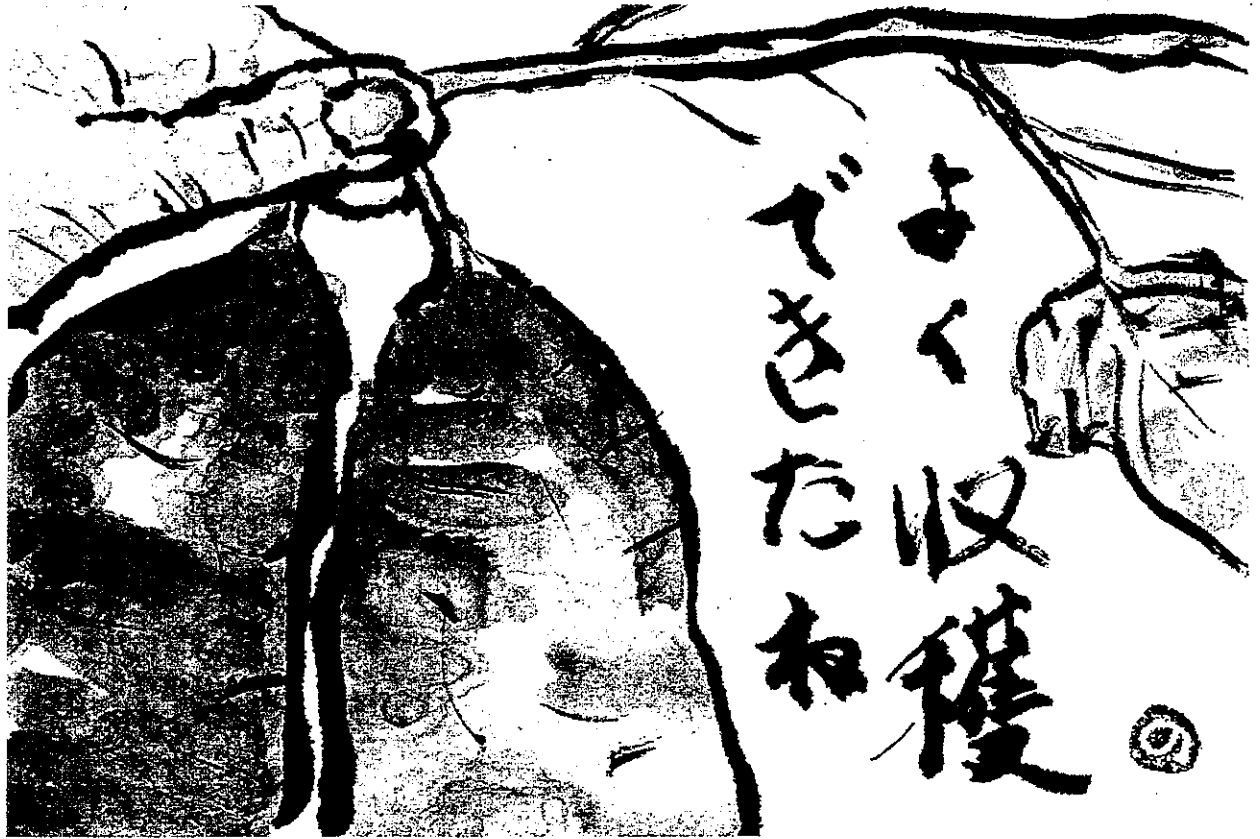 よく収穫
できたね